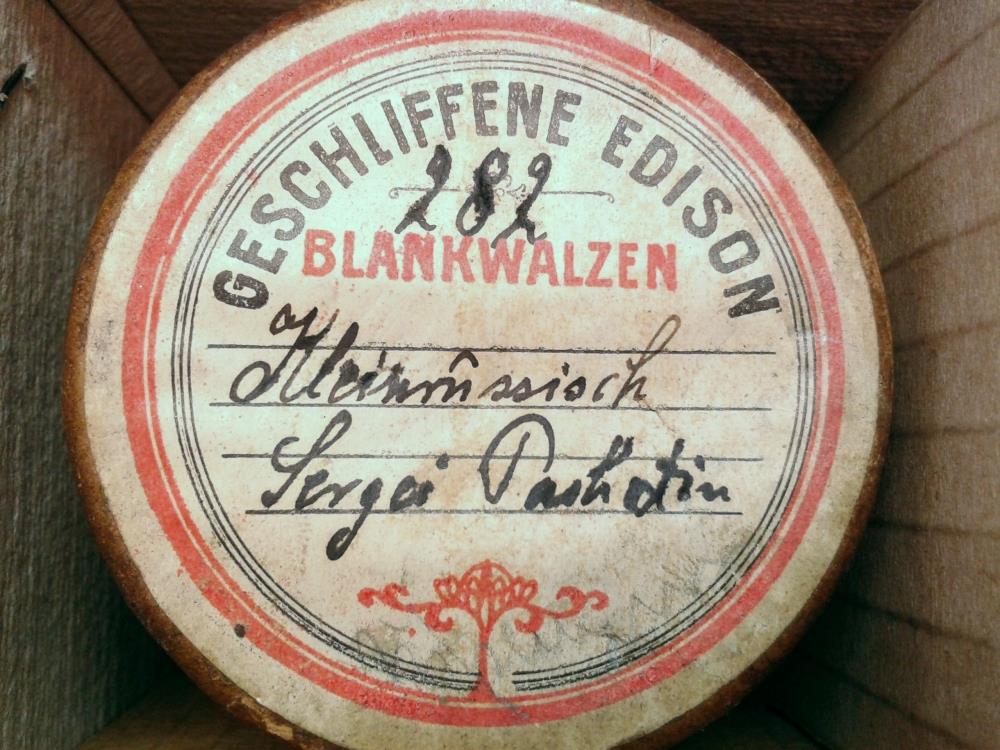 GESCHLIFFENE EDISON
282
BLANKWALZEN
Kleinrûssisch
Sergei